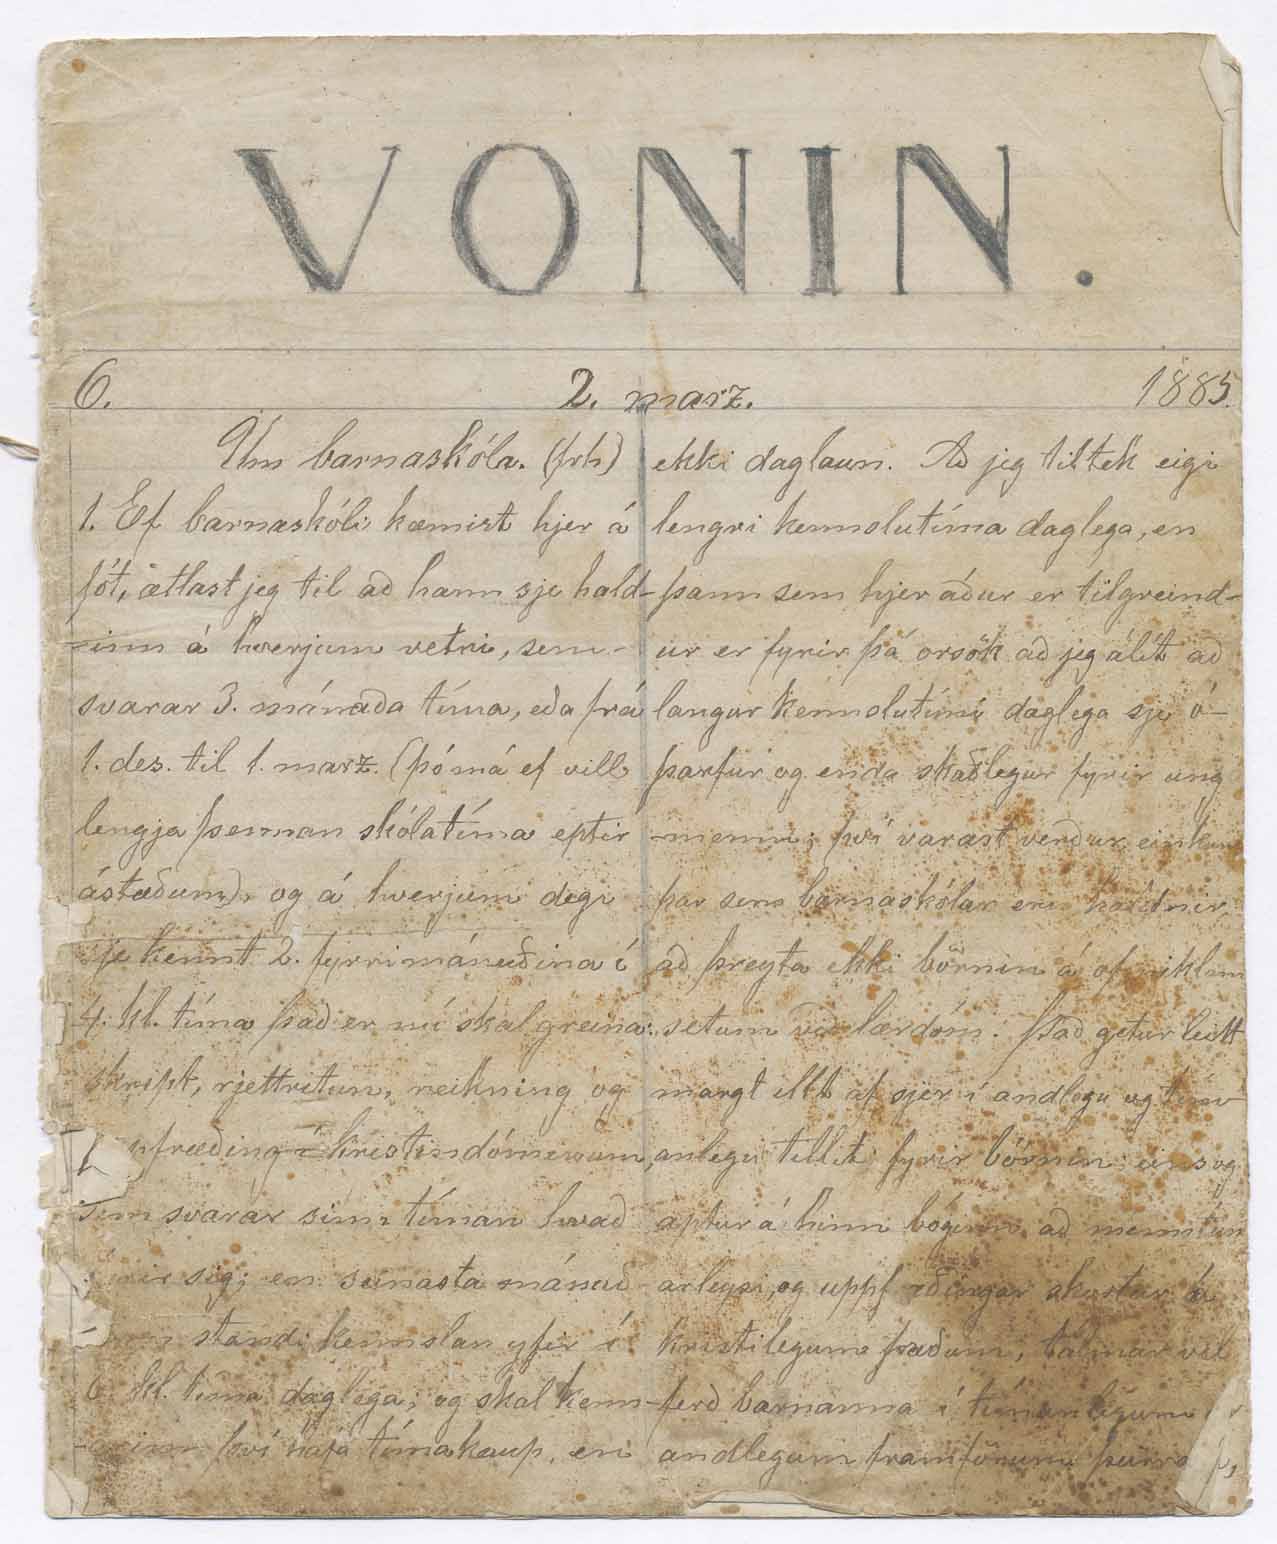 VONIN.
6. 2. marz. 1885.
Um barnaskóla. (frh)
1. Ef barnaskóli kæmist hjer á
fót, ætlast jeg til að hann sje hald-
inn á hverjum vetri, sem
svarar 3. mánaða tíma, eða frá
1. des. til 1. marz. (þó má ef vill
lengja þennan skólatíma eptir
ástæðum), og á hverjum degi
sje kennt 2. fyrri mánuðina í
4. kl. tíma það er nú skal greina:
skript, rjettritun, reikning og
uppfræðing í kristindómnum,
sem svarar sinn tíman hvað
fyrir sig; en seinasta mánuð
standi kennslan yfir í
6 kl. tíma daglega; og skal kenn-
arinn því hafa tímakaup, en
ekki daglaun. Að jeg tiltek eigi
lengri kennslutíma daglega, en
þann sem hjer áður er tilgreind-
ur er fyrir þá orsök að jeg álít að
langur kennslutími daglega sje ó-
þarfur og enda skaðlegur fyrir ung
menni; því varast verður einkum
þar sem barnaskólar eru haldnir,
að þreyta ekki börnin á of miklum
setum við lærdóm. Það getur leitt
margt illt af sjer í andlegu og tím-
anlegu tilliti fyrir börnin; eins og
aptur á hinn bóginn að menntun
arleysi, og uppf ðingar skortur á
kristilegum fræðum, talmar vel
ferð barnanna í tímanlegum
andlegum framförum þeirra